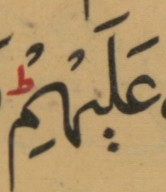 عَلَيْهِمْ ط